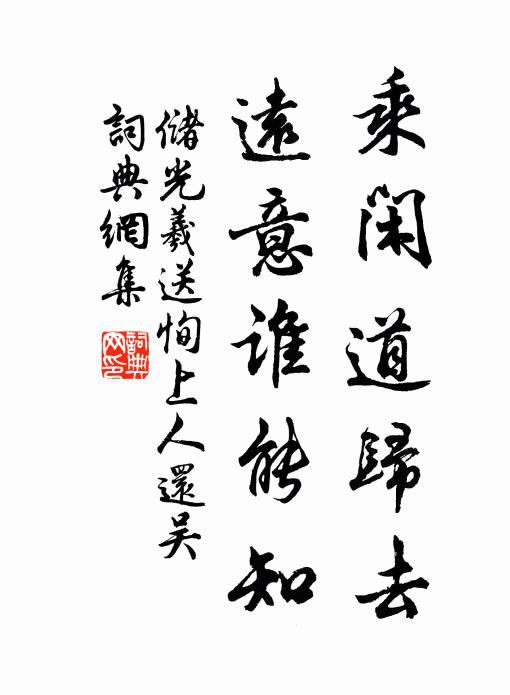 乘閑道歸去
遠意誰能知
儲光羲送恂上人還吳
詞典網集
詞典網印